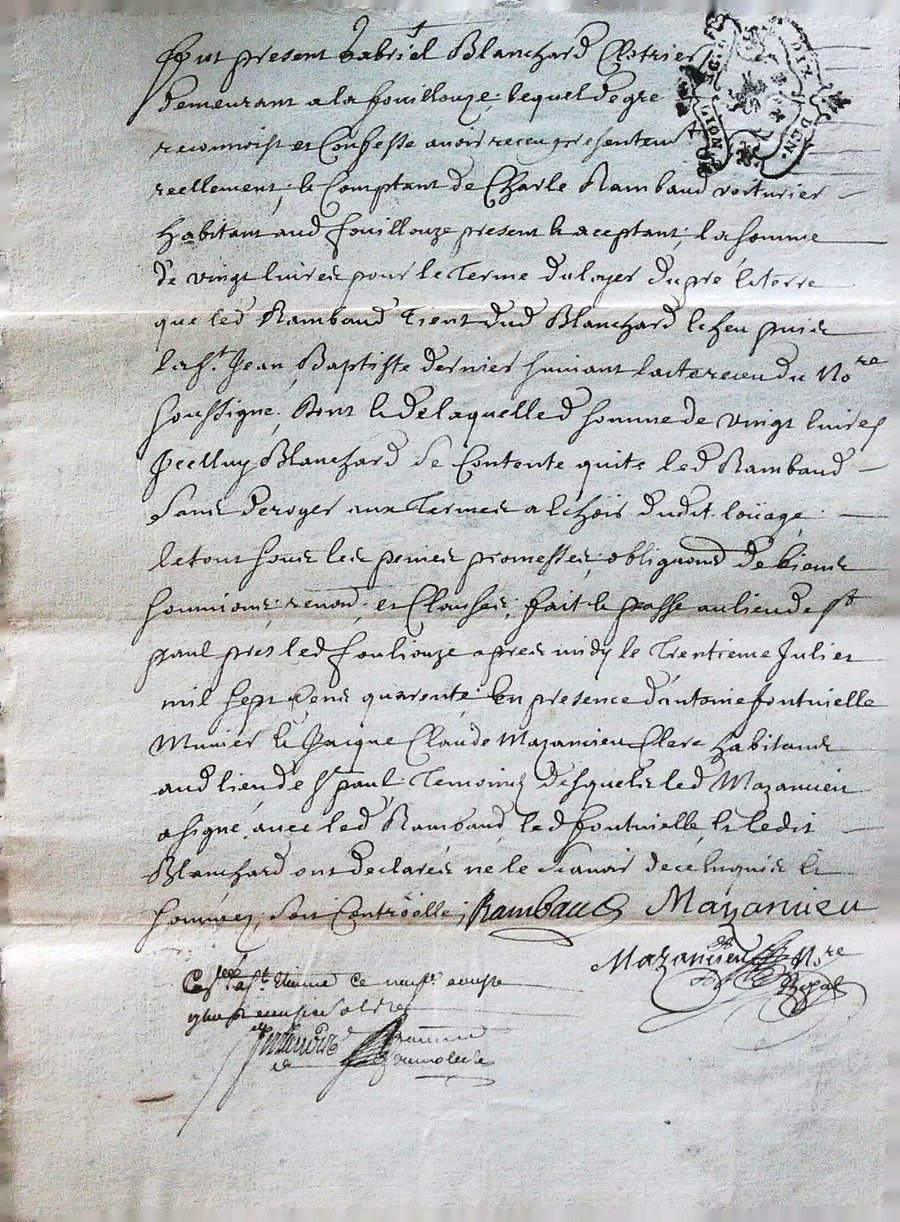 fut present Gabriel Blanchard
demeurant a la fouillouze lequel de gre
reconnoist et Confesse avoir receu presentemt
reellement, & Comptant de Charle Rambaud voiturier
habitant aud fouillouze present & aceptant, la somme
de vingt livres pour le terme du loyer du pré & terre
que led Rambaud tient dud Blanchard
la st Jean Baptiste dernier suivant lacte receu du Nore
soussigne, dont & de laquelle d somme de vingt livres
Jcelluy Blanchard se Contente quite led Rambaud
sans deroger aux termes a Echoir dudit loüage
le tout sous les peines promesses, obligaõns de biens
soumions, renoñ, et Clauses, fait & passé au lieu de st
paul pres led fouliouze apres midy le trentieme Juliet
mil sept Cens quarente, En presence d'antoine fontvielle
Munier & Jacque Claude Mazancieu Clerc habitans
aud lieu de st paul temoins desquels led Mazancieu
a signé avec led Rambaud, led fontvielle, & ledit
Blanchard ont declarés ne le scavoir de ce Enquis &
sommez, soit Controölle, Rambaud Mazancieu
Mazancieu Nore
Royal
Collé a st Etienne ce neufe aoust